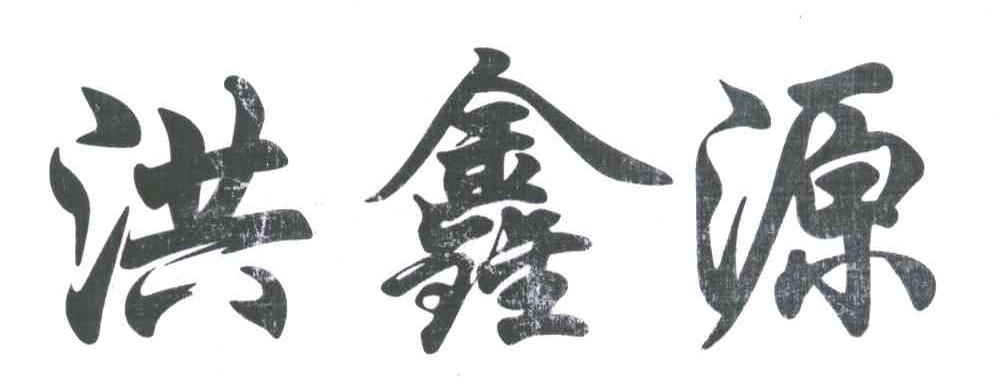 洪鑫源